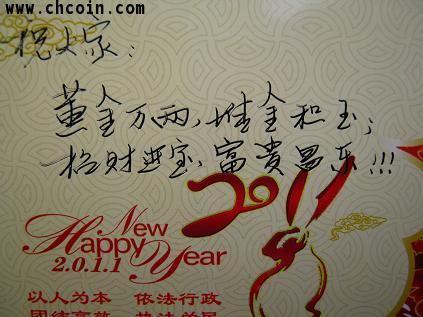 www.chcoin.com
祝大家：
黄金万两，堆金积玉；
招财进宝，富贵昌乐!!!
2011
New
Happy
Year
2.0.1.1
以人为本 依法行政
团结高效 执法为民